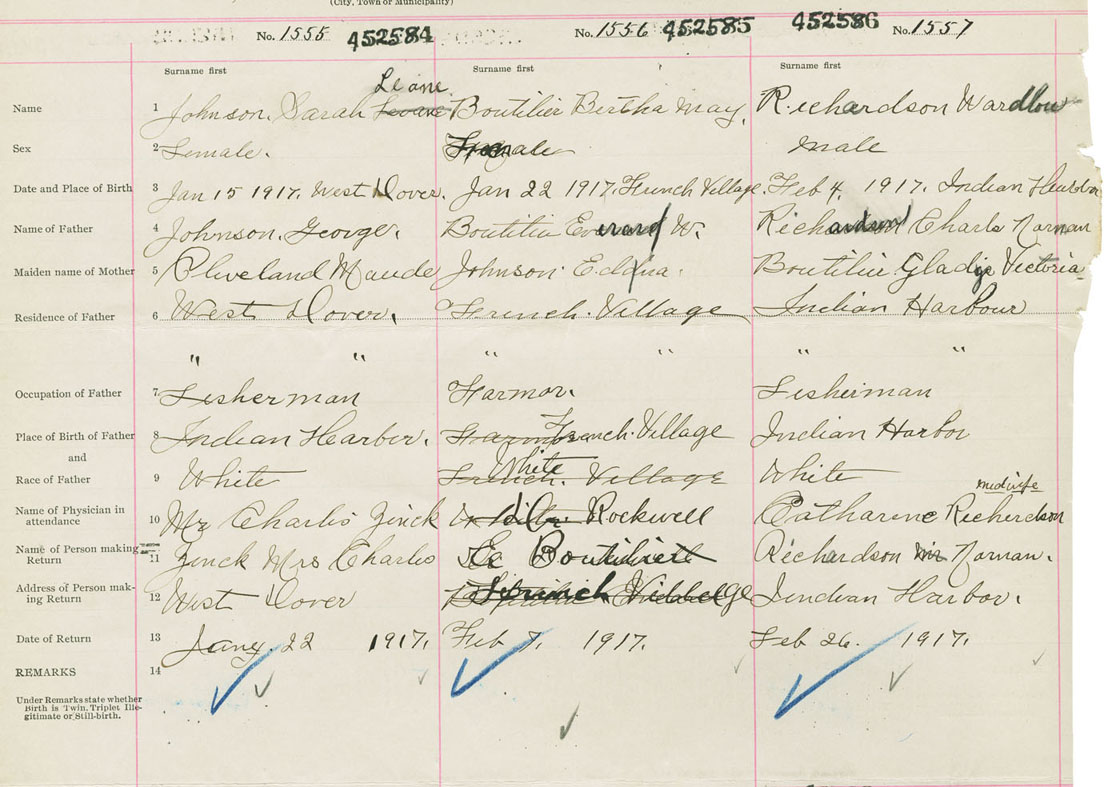 (City, Town or Municipality)
No. 1555 452584 No. 1556 452585 452586 No. 1557
Surname first Surname first Surname first
Leane
Name 1 Johnson, Sarah Boutilier Bertha May, Richardson Wardlow
Sex 2 Female. Female male
Date and Place of Birth 3 Jan 15 1917. West Dover. Jan 22 1917. French Village. Feb 4, 1917. Indian
Name of Father 4 Johnson. George. Boutilier W. Richardson Charls Norman
Maiden name of Mother 5 Cleveland Maude Johnson Edna. Boutilier Gladys Victoria
Residence of Father 6 West Dover. French. Village Indian Harbour
" " " " " "
Occupation of Father 7 Fisherman Farmor. Fisherman
Place of Birth of Father 8 Indian Harber. French. Village Indian Harbor
and
White
Race of Father 9 White French. Village White
midwife
Name of Physician in
attendance 10 Mr Charlis Zinck Rockwell Catharine Richerdson
Name of Person making
Return 11 Zinck Mrs Charlis Richardson Norman.
Address of Person mak-
ing Return 12 West Dover Indian Harbor.
Date of Return 13 Jany. 22 1917. Feb 7. 1917. Feb 26. 1917.
REMARKS 14
Under Remarks state whether
Birth is Twin. Triplet Ille-
gitimate or Still-birth.